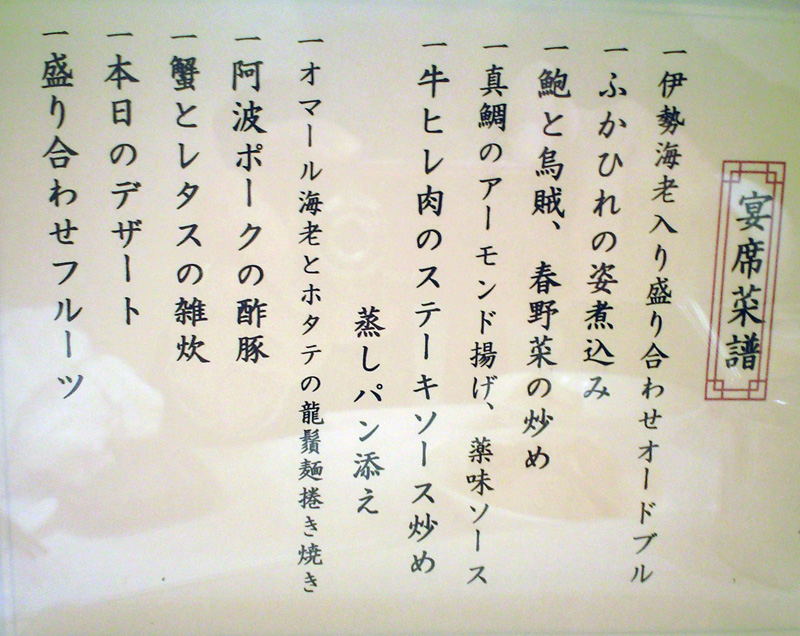 宴席菜譜
一伊勢海老入り盛り合わせオードブル
一ふかひれの姿煮込み
一鮑と烏賊、春野菜の炒め
一真鯛のアーモンド揚げ、薬味ソース
一牛ヒレ肉のステーキソース炒め
蒸しパン添え
一オマール海老とホタテの龍鬚麺捲き焼き
一阿波ポークの酢豚
一蟹とレタスの雑炊
一本日のデザート
一盛り合わせフルーツ